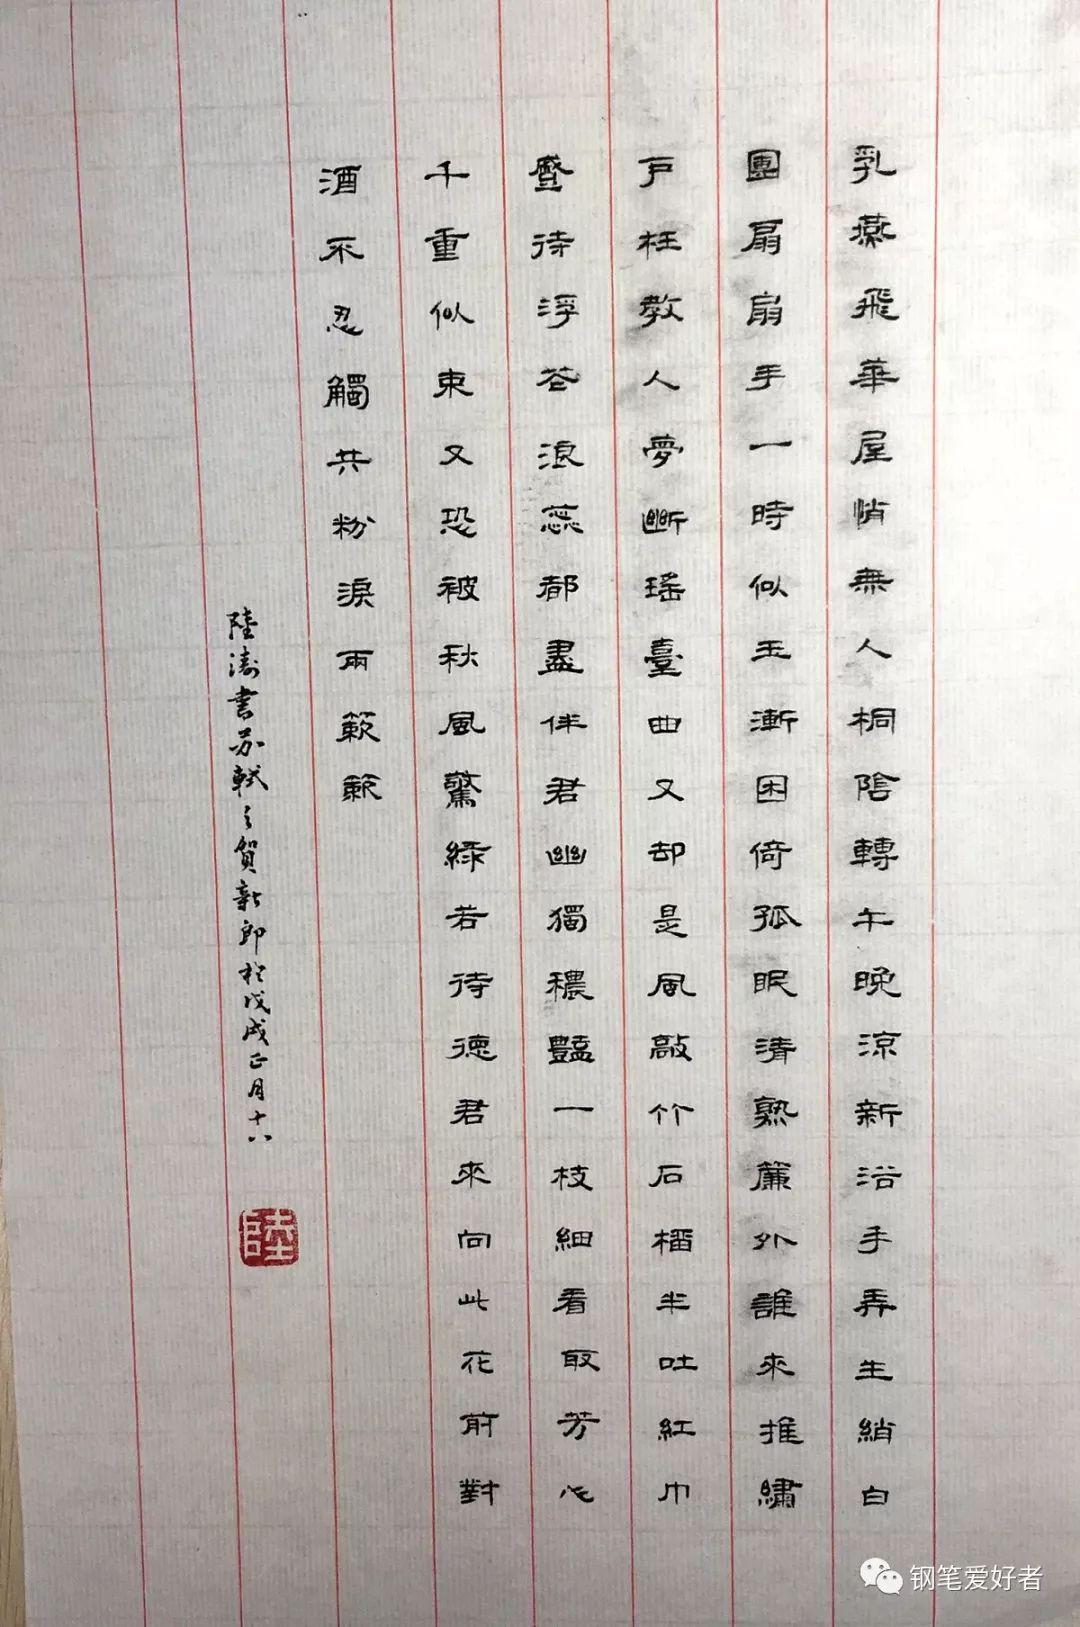 乳燕飛華屋悄無人桐陰轉午晚涼新浴手弄生綃白
團扇扇手一時似玉漸困倚孤眠清熟簾外誰來推繡
戶枉教人夢斷瑤臺曲又却是風敲竹石榴半吐紅巾
蹙待浮花浪蕊都盡伴君幽獨穠豔一枝細看取芳心
千重似束又恐被秋風驚綠若待德君來向此花前對
酒不忍觸共粉淚兩簌簌
陸濤書苏軾之賀新郎於戊戌正月十八
陸
钢笔爱好者